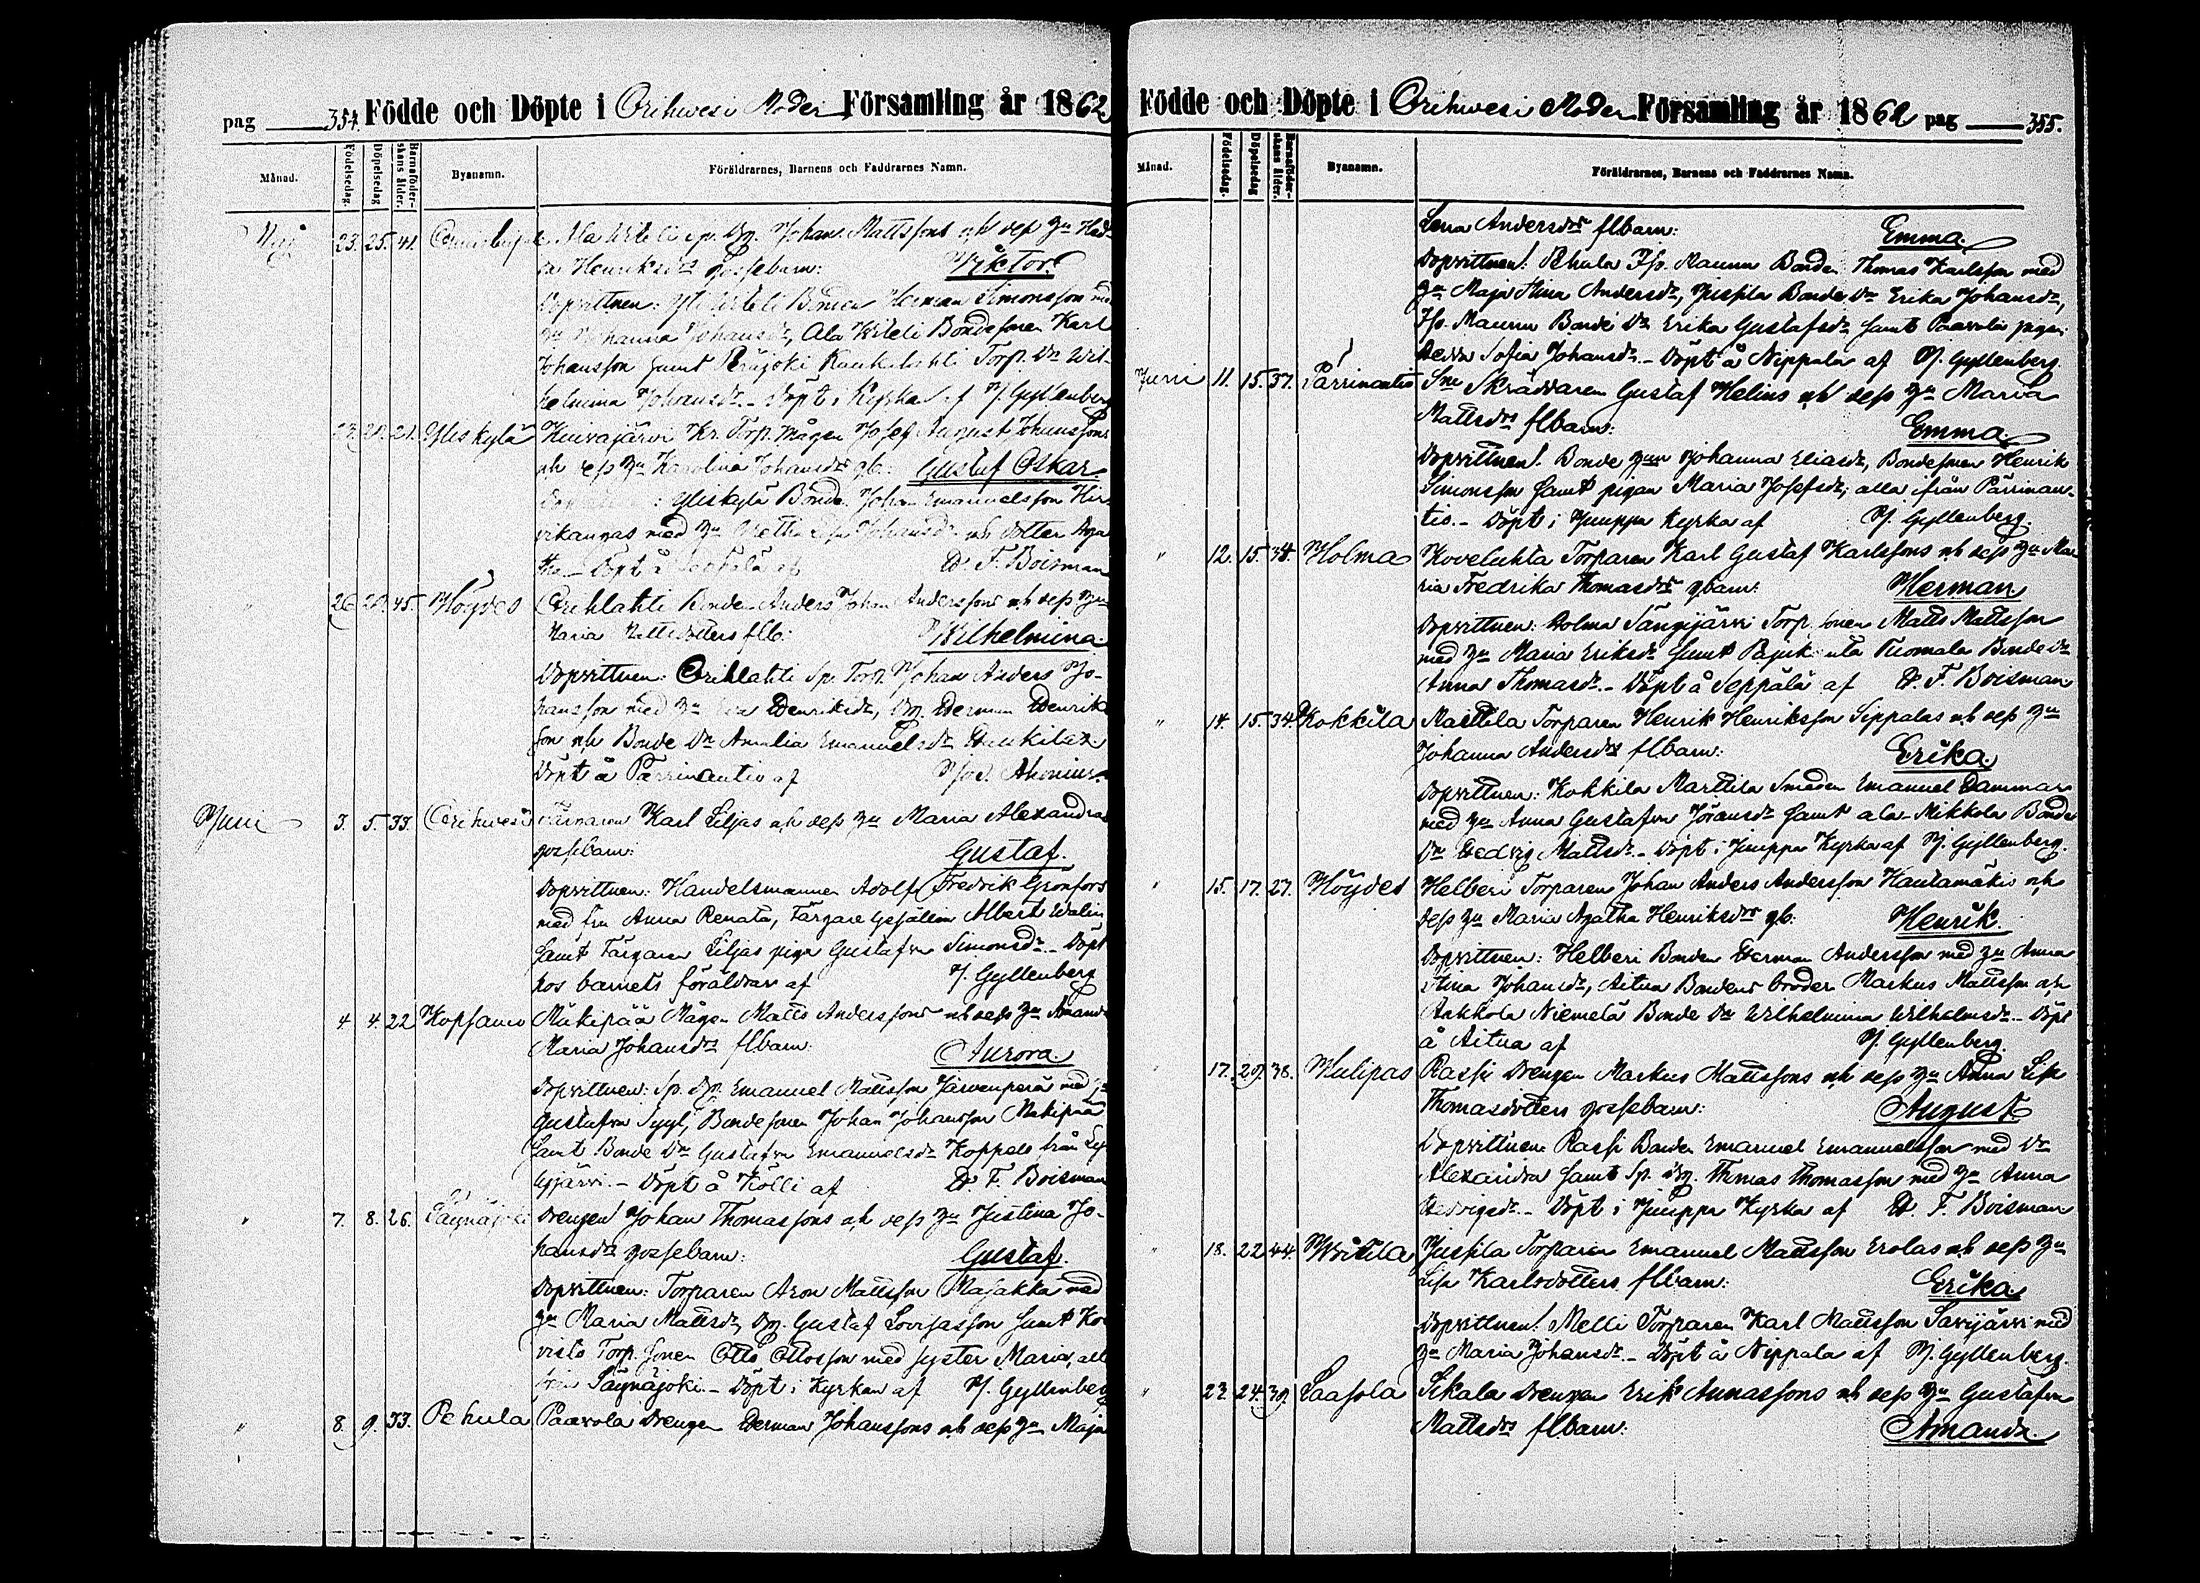 pag 354. Födde och Döpte i Orihwesi Moder Församling år 1862
Månad. Födelsedag. Döpelsedag Barnaföderskans ålder. Byanamn. Föräldrarnes, Barnens och Faddrarnes Namn.
Maj 23. 25. 41. Ala Uiteli Sp. Dg. Johan Mattssons och dess Hu Hed-
da Henriksdrs gossebarn: Wiktor.
Dopvittnen: Yli Uiteli Bonden Herman Simonsson med
Hu Johanna Johansdr, Ala Uiteli Bondesonen Karl
Johansson samt Torp. Dr Wil-
helmina Johansdr. - Döpt i Kyrkan af Hj. Gyllenberg
27. 28. 21. Yliskylä Kuivajärvi Kr. Torp. Mågen Josef August Johanssons
och dess Hu Karolina Johansdrs gb: Gustaf Oskar.
: Yliskylä Bonde Johan Emanuelsson Hir-
vikangas med Hu Johansdr och dotter Aga
tha - Döpt å Seppälä af D. F. Boisman
26. 28. 45. Höydes Orihlahti Bonden Anders Johan Anderssons och dess Hu
Maria Mattsdotters flb: Wilhelmina.
Dopvittnen: Orihlahti Sp. Torp. Johan Anders Jo-
hansson med Hu Henriksdr, Dg. Herman Henriks
son och Bonde Dr Amalia Emanuelsdr
Döpt å Pärrinantio af Ahonius.
Juni 3. 5. 33. Orihwesi Färgaren Karl Liljas och dess Hu Maria Alexandras
gossebarn: Gustaf.
Dopvittnen: Handelsmannen Adolf Fredrik Grönfors
med fru Anna Renata, Färgare Gesällen Albert Walin
samt Färgaren Liljas pigan Gustafva Simonsdr. - Döpt
hos barnets föräldrar af Hj. Gyllenberg
4 4. 22 Kopsamo Mäkipää Mågen Matts Anderssons och dess Hu Amanda
Maria Johansdrs flbarn: Aurora.
Dopvittnen: Sp. Dg. Emanuel Mattsson Järvenperä med Hu
Gustafva , Bondesonen Johan Johansson Mäkipää
samt Bonde Dr Gustafva Emanuelsdr Koppelo från
- Döpt å Kölli af D. F. Boisman
" 7. 8. 26. Säynäjoki Drengen Johan Thomassons och dess Hu Justina Jo-
hansdrs gossebarn: Gustaf.
Dopvittnen: Torparen Aron Mattsson Majakka med
Hu Maria Mattsdr, Dg. Gustaf Lovisasson samt Ko
visto Torp. Sonen Otto Ottosson med syster Maria, alla
från Säynäjoki. - Döpt i Kyrkan af Hj. Gyllenberg
" 8. 9. 33. Pehula Paavola Drengen Herman Johanssons och dess Hu Maja
Födde och Döpte i Orihwesi Moder Församling år 1862 pag 355.
Månad. Födelsedag. Döpelsedag Barnaföderskans ålder. Byanamn. Föräldrarnes, Barnens och Faddrarnes Namn.
Lena Andersdrs flbarn: Emma.
Dopvittnen: Pehula Iso Maunu Bonden Thomas Karlsson med
Hu Maja Stina Andersdr, Jussila Bonde Dr Erika Johansdr,
Iso Maunu Bonde Dr Erika Gustafsdr samt Paavola pigan
Hedda Sofia Johansdr. - Döpt å Nippala af Hj. Gyllenberg.
Juni 11. 15. 37. Pärrinantio Sne Skräddaren Gustaf Helins och dess Hu Maria
Mattsdrs flbarn: Emma.
Dopvittnen: Bonde Hun Johanna Eliasdr, Bondesonen Henrik
Simonsson samt pigan Maria Josefsdr; alla ifrån Pärrinan-
tio. - Döpt i Juuppa Kyrka af Hj. Gyllenberg.
" 12. 15. 34. Holma Kovelahta Torparen Karl Gustaf Karlssons och dess Hu Ma-
ria Fredrika Thomasdrs gbarn: Herman
Dopvittnen: Holma Torp. Sonen Matts Mattsson
med Hu Maria Eriksdr samt Tuomala Bonde Dr
Anna Thomasdr. - Döpt å Seppälä af D. F. Boisman
" 14. 15. 34. Kokkila Marttila Torparen Henrik Henriksson Seppälas och dess Hu
Johanna Andersdrs flbarn: Erika.
Dopvittnen: Kokkila Marttila Smeden Emanuel Hammar
med Hu Anna Gustafva Jöransdr samt ala-Mikkola Bonde
Dr Hedvig Mattsdr. - Döpt i Juuppa Kyrka af Hj. Gyllenberg.
" 15. 17. 27. Höydes Helberi Torparen Johan Anders Andersson Hautamäkis och
dess Hu Maria Agatha Henriksdrs gb: Henrik.
Dopvittnen: Helberi Bonden Herman Andersson med Hu Anna
Stina Johansdr, Aitua Bondens broder Markus Mattsson och
Niemelä Bonde Dr Wilhelmina Wilhelmsdr. - Döpt
å Aitua af Hj. Gyllenberg.
17. 29. 38. Hulipas Rassi Drengen Markus Mattssons och dess Hu Anna Lisa
Thomasdotters gossebarn: August
Dopvittnen Rassi Bonden Emanuel Emanuelsson med Dr
Alexandra samt Sp. Dg. Thomas Thomasson med Hu Anna
Hedvigsdr. - Döpt i Juuppa Kyrka af D. F. Boisman
" 18. 22 44. Wöitila Jussila Torparen Emanuel Mattsson Erolas och dess Hu
Lisa Karlsdotters flbarn: Erika
Dopvittnen: Melli Torparen Karl Mattsson Savijärvi med
Hu Maria Johansdr. - Döpt å Nippala af Hj. Gyllenberg.
" 23. 24. 39. Saasola Sikala Drengen Erik Annassons och dess Hu Gustafva
Mattsdrs flbarn: Amanda.